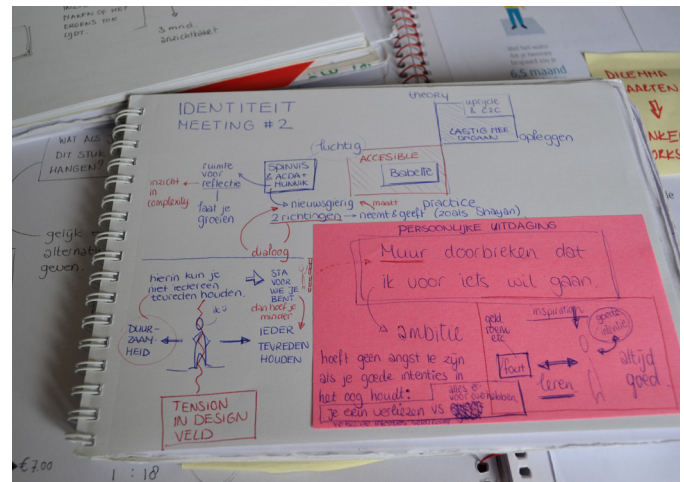 MAKEN OF HET
ERGENS TOE
LIJDT.
3 mnd.
inzichtbaar
6,5 maand
DILEMMA
WAT ALS
DIT STUK
HANGEN?
gelijk
alternati
geven.
€7.00
1 : 18
IDENTITEIT
MEETING #2
theory
upcycle
& C2C
LASTIG MEE
OMGAAN
opleggen
luchtig
ACCESIBLE
Babette
ruimte
voor
reflectie
SPINVIS
& ACDA+
MUNNIK
inzicht
in
complexity
laat je
groeien
nieuwsgierig
maatt
practice
2 richtingen → neemt & geeft (zoals Shayan)
dialoog
hierin kun je
niet iedereen
tevreden houden.
STA
VOOR
WIE JE
BENT.
dan hoef je
minder
IEDER
TEVREDEN
HOUDEN
DUUR-
ZAAM-
HEID
ik
TENSION
IN DESIGN
VELD
PERSOONLIJKE UITDAGING
Muur doorbreken dat
ik voor iets wil gaan.
ambitie
hoeft geen angst te zijn
als je goede intenties in
het oog houdt:
alles er
voor over hebben
je erin verliezen VS
inspiration
geld
roem
etc
goede
intentie
fout
leren
altijd
goed.